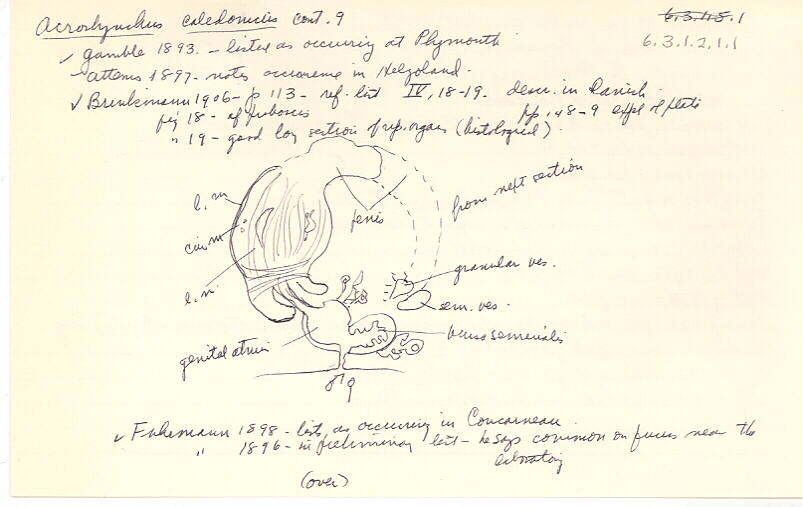 Acrorhynchus caledonicus cont. 9
6.3.1.5.1
6.3.1.2.1.1
✓ Gamble 1893. - listed as occuring at Plymouth
- Attems 1897 - notes occurence in Helgoland.
✓ Brinkmann 1906 - p 113 - ref. list IV, 18-19. descr. in Danish.
fig 18 - of proboscis pp. 48-9 expl of plate
" 19 - good long section of rep. organs (histological).
l. m
penis
from next section
cir. m
l. m
granular ves.
sem. ves.
bursa seminalis
genital atrium
♂ ♀
✓ Fuhrmann 1898 - lists as occuring in Concarneau.
" 1896 - in preliminary list - he says common on fucus near the
laboratory
(over)